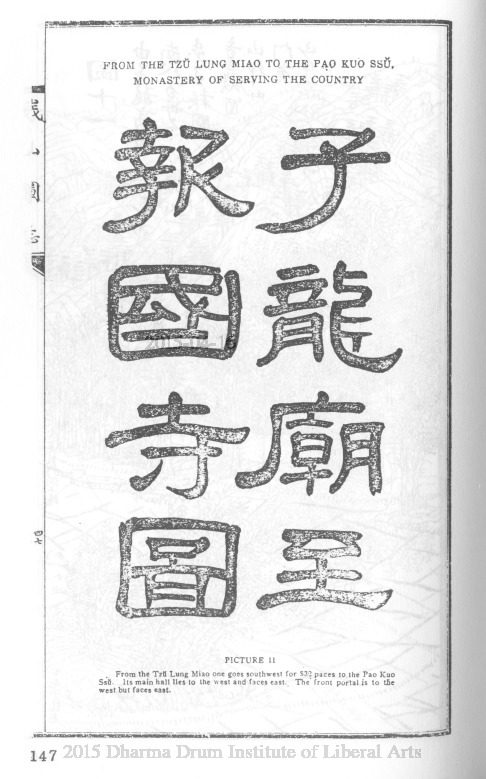 FROM THE TZŬ LUNG MIAO TO THE PAO KUO SSŬ,
MONASTERY OF SERVING THE COUNTRY
子龍廟至
報國寺圖
PICTURE 11
From the Tzŭ Lung Miao one goes southwest for paces to the Pao Kuo
Ssŭ. Its main hall lies to the west and faces east. The front portal is to the
west but faces east.
147 2015 Dharma Drum Institute of Liberal Arts